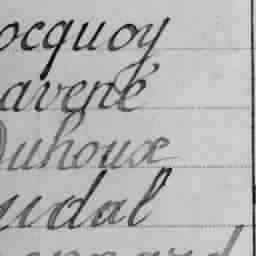 ocquoy
avené
Duhoux
udal